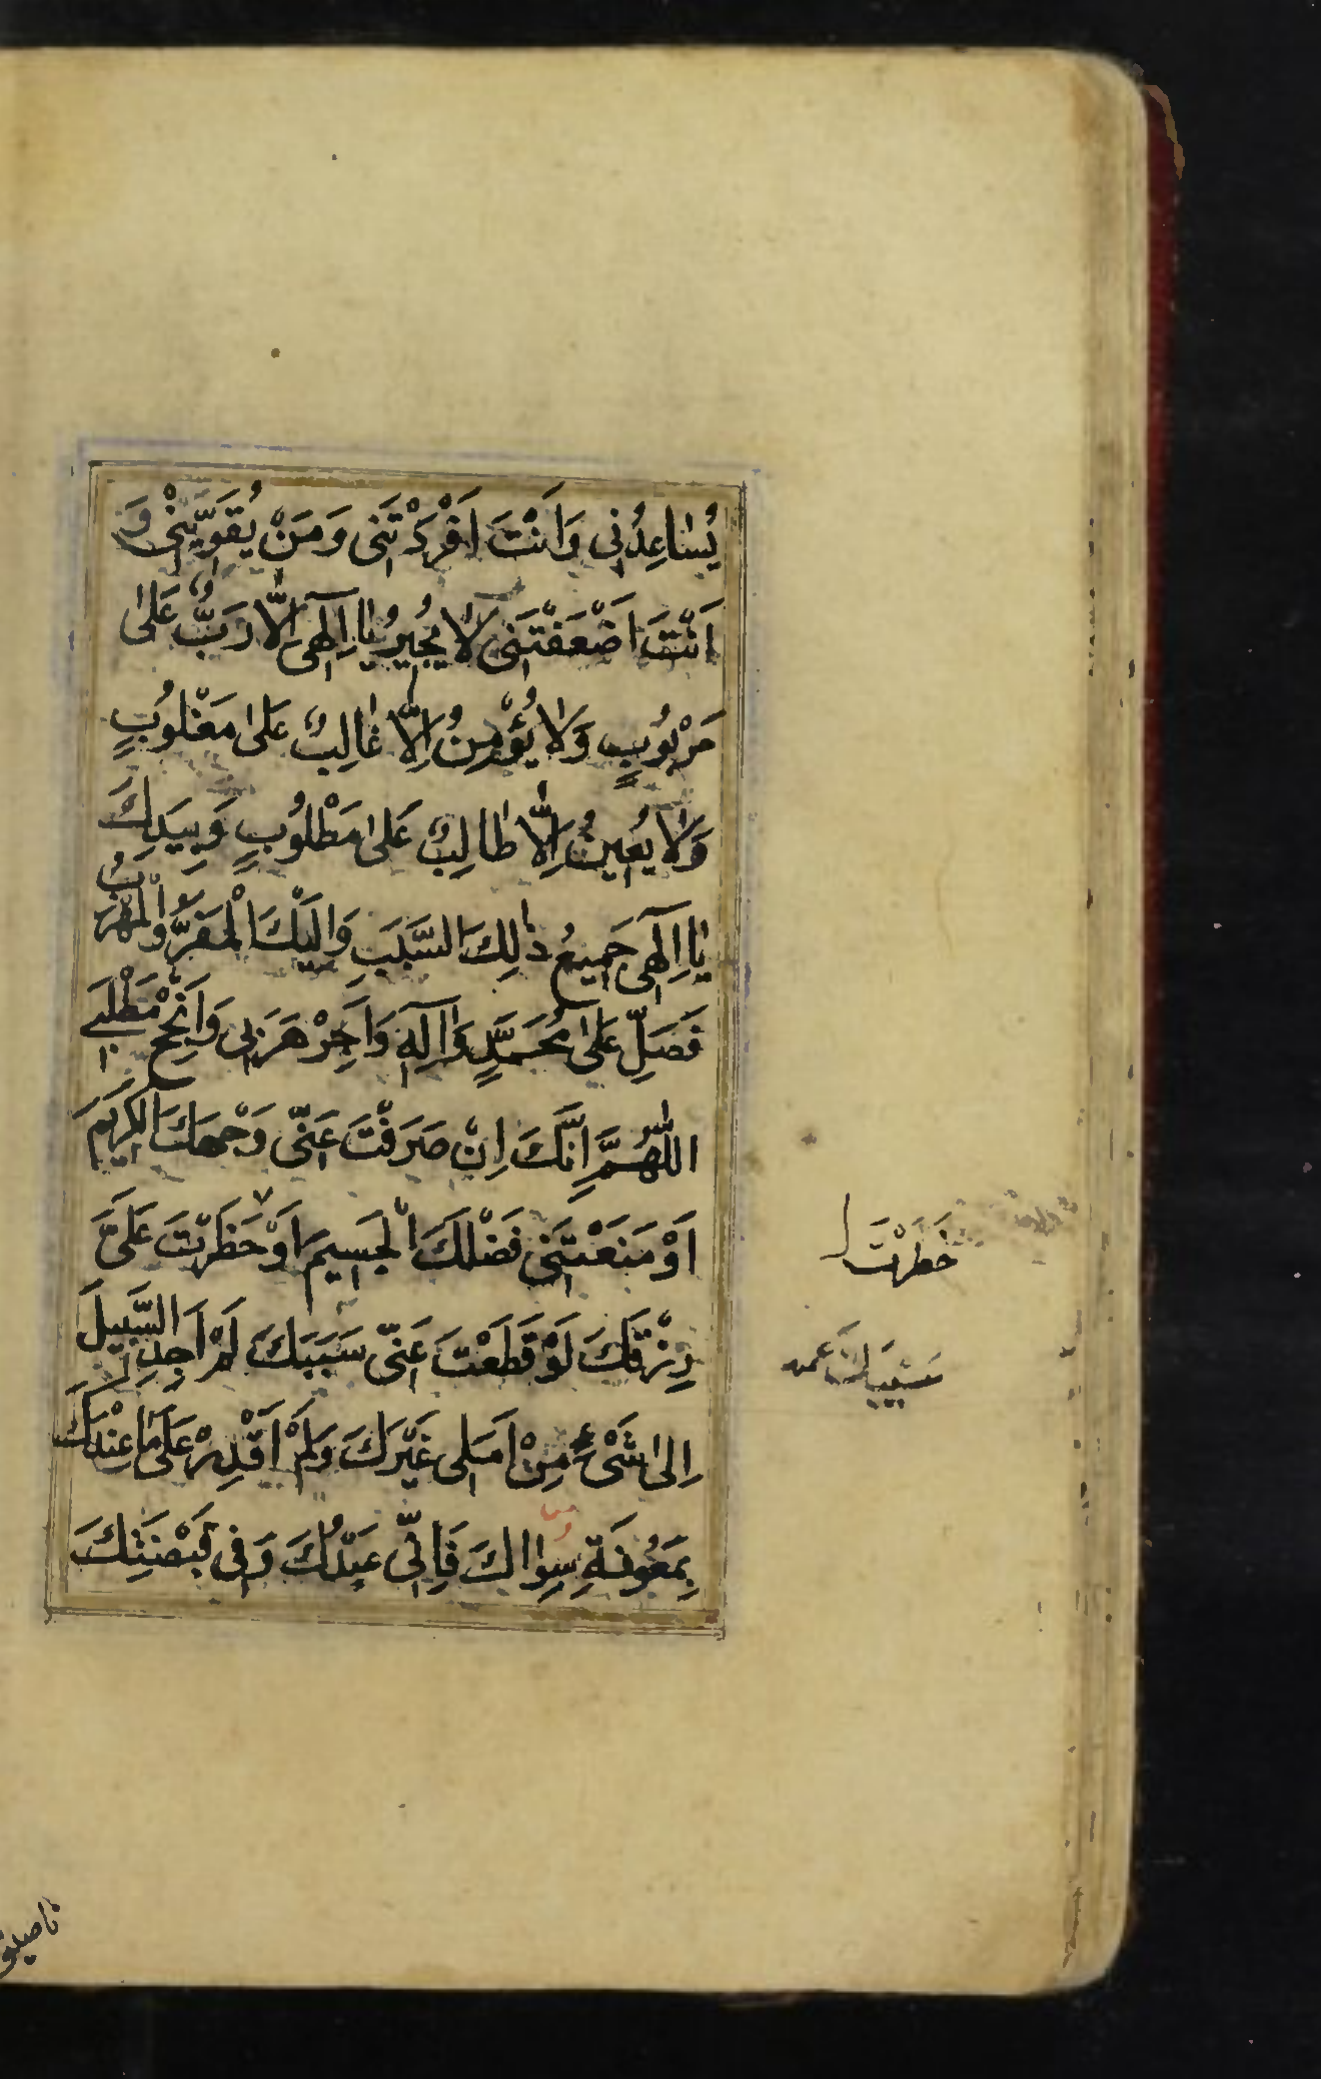 يُسٰاعِدُنِي وَاَنْتَ اَفْرَدْتَنِي وَمَنْ يُقَوِّيْنِي وَ
اَنْتَ اَضْعَفْتَنِي لٰا يُجِيرُ يٰا اِلٰهِي اِلّٰا رَبٌّ عَلىٰ
مَرْبُوبٍ وَلٰا يُؤْمِنُ اِلّٰا غٰالِبٌ عَلىٰ مَغْلُوبٍ
وَلٰا يُعِينُ اِلّٰا طٰالِبٌ عَلىٰ مَطْلُوبٍ وَبِيَدِكَ
يٰا اِلٰهِي جَمِيعُ ذٰلِكَ السَّبَبِ وَاِلَيْكَ الْمَفَرُّ وَالْمَهْرَبُ
فَصَلِّ عَلىٰ مُحَمَّدٍ وَآلِهِ وَاَجِرْ هَرَبِي وَاَنْجِحْ مَطْلَبِي
اللّٰهُمَّ اِنَّكَ اِنْ صَرَفْتَ عَنِّي وَجْهَكَ الْكَرِيمَ
اَوْ مَنَعْتَنِي فَضْلَكَ الْجَسِيمَ اَوْ حَظَرْتَ عَلَيَّ
رِزْقَكَ لَوْ قَطَعْتَ عَنِّي سَبَبَكَ لَمْ اَجِدِ السَّبِيلَ
اِلىٰ شَيْءٍ مِنْ اَمَلِي غَيْرَكَ وَلَمْ اَقْدِرْ عَلىٰ مٰا عِنْدَكَ
بِمَعُونَةِ سِوٰاكَ فَاِنِّي عَبْدُكَ وَفِي قَبْضَتِكَ
خَطَرْتَ
سَيْبَكَ
نٰاصيتى